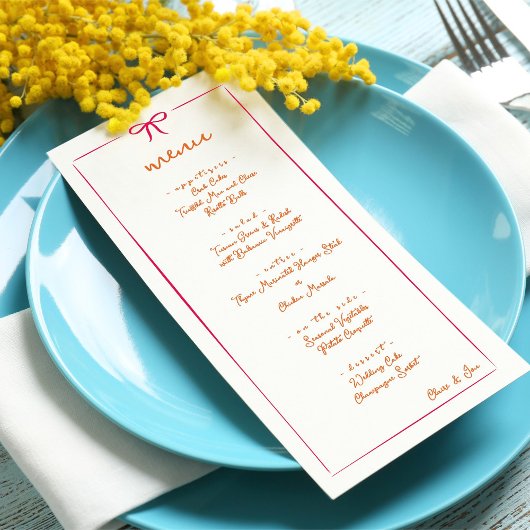 menu
- appetizer -
Crab Cakes
Truffled Mac and Cheese
Risotto Balls
- salad -
Tuscan Greens & Radish
with Balsamic Vinaigrette
- entree -
Thyme Marinated Hanger Steak
or
Chicken Marsala
- on the side -
Seasonal Vegetables
Potato Croquette
- dessert -
Wedding Cake
Champagne Sorbet
Claire & Joe